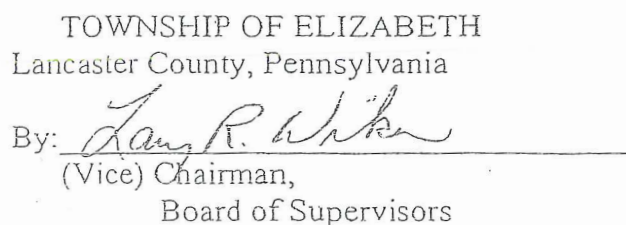 TOWNSHIP OF ELIZABETH
Lancaster County, Pennsylvania
By: R.
(Vice) Chairman,
Board of Supervisors